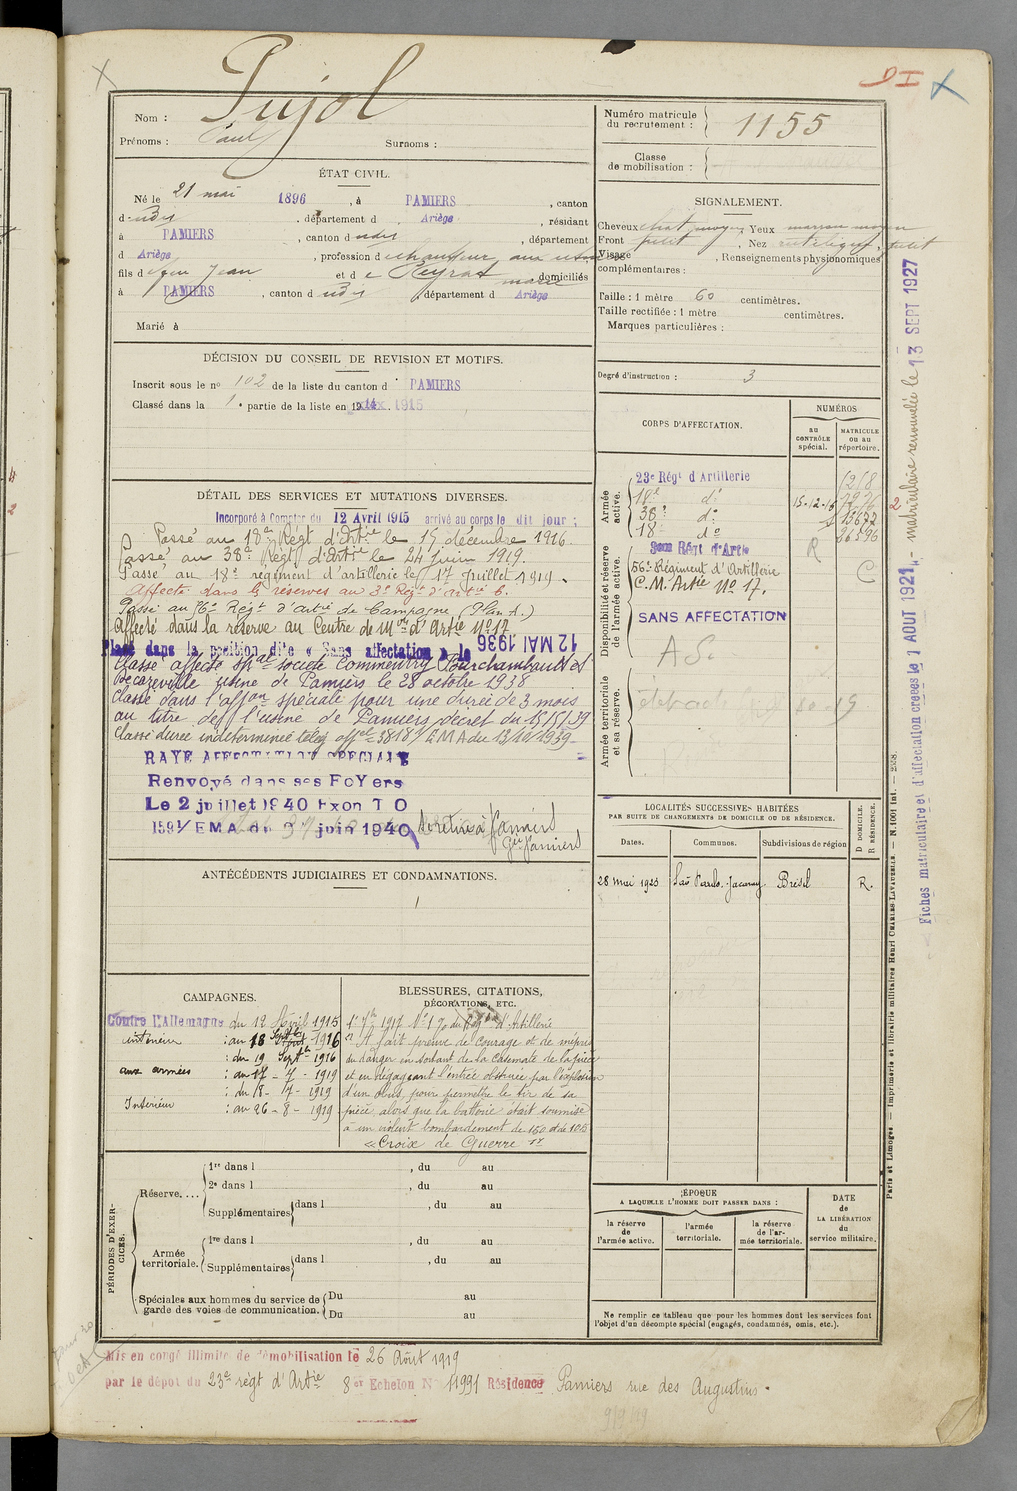 DI
Nom : Pujol
Prénoms : Paul Surnoms :
Numéro matricule du recrutement : 1155
Classe de mobilisation :
ÉTAT CIVIL.
Né le 21 mai 1896, à PAMIERS, canton
dudis, département d Ariège, résidant
à PAMIERS, canton dudis, département
d Ariège, profession d chauffeur aux usines
fils d feu Jean et d e Peyrat marie domiciliés
à PAMIERS, canton dudis, département d Ariège
Marié à
SIGNALEMENT.
Cheveux chat. moyen Yeux marron moyen
Front petit, Nez rectiligne, petit
Visage, Renseignements physionomiques
complémentaires :
Taille : 1 mètre 60 centimètres.
Taille rectifiée : 1 mètre centimètres.
Marques particulières :
Degré d'instruction : 3
DÉCISION DU CONSEIL DE REVISION ET MOTIFS.
Inscrit sous le no 102 de la liste du canton d PAMIERS
Classé dans la 1e partie de la liste en 1915
DÉTAIL DES SERVICES ET MUTATIONS DIVERSES.
Incorporé à Compter du 12 Avril 1915 arrivé au corps le dit jour ;
Passé au 18e Régt d'Artie le 15 décembre 1916.
Passé au 38e Régt d'Artie le 24 Juin 1919.
Passé au 18e régiment d'artillerie le 17 Juillet 1919.
Affecté dans les réserves au 3e Régt d'art ie 6.
Passé au 56e Régt d'artie de Campagne (Plan A.)
Affecté dans la réserve au Centre de Mon d'Artie No 17
Placé dans la position dite « Sans affectation » le 12 MAI 1936
Classé affecté spal société Commentry Fourchambault et
Decazeville usine de Pamiers le 28 octobre 1938
Classé dans l'affon spéciale pour une durée de 3 mois
au titre de l'usine de Pamiers décret du 15/5/39
Classé durée indéterminée télég offel 38181 EMA du 13/10/1939
RAYE AFFECTATION SPECIALE
Renvoyé dans ses FoYers
Le 2 juillet 1940 Exon T O
1591/EMA du juin 1940 se retire à Pamiers
Gie Pamiers
CORPS D'AFFECTATION.
NUMÉROS
au CONTRÔLE spécial.
MATRICULE ou au répertoire.
Armée active.
23e Régt d'Artillerie
18e do 15-12-16
38e do 13872
18 do 26596
Disponibilité et réserve de l'armée active.
56e Régiment d'Artillerie R
C.M. Artie No 17. C
SANS AFFECTATION
A.S.
Armée territoriale et sa réserve.
LOCALITÉS SUCCESSIVES HABITÉES
PAR SUITE DE CHANGEMENTS DE DOMICILE OU DE RÉSIDENCE.
Dates. Communes. Subdivisions de région D DOMICILE. R RÉSIDENCE.
28 mai 1923 Sao Paulo Brésil R.
ANTÉCÉDENTS JUDICIAIRES ET CONDAMNATIONS.
CAMPAGNES.
Contre l'Allemagne du 12 Avril 1915
intérieur : au 18 Septbre 1916
: du 19 Septbre 1916
aux armées : au 17 - 7 - 1919
: du 18 - 7 - 1919
Intérieur : au 26 - 8 - 1919
BLESSURES, CITATIONS, DÉCORATIONS, ETC.
1917 No 170 du Régt d'Artillerie
"A fait preuve de courage et de mépris
du danger en sortant de la casemate de la pièce
et en dégageant l'entrée obstruée par l'explosion
d'un obus, pour permettre le tir de sa
pièce alors que la batterie était soumise
à un violent bombardement de 150 et de 105
"Croix de Guerre"
PÉRIODES D'EXERCICES.
Réserve....
1re dans l , du au
2e dans l , du au
Supplémentaires dans l , du au
Armée territoriale.
1re dans l , du au
Supplémentaires dans l , du au
Spéciales aux hommes du service de garde des voies de communication.
Du au
Du au
ÉPOQUE
A LAQUELLE L'HOMME DOIT PASSER DANS :
la réserve de l'armée active.
l'armée territoriale.
la réserve de l'armée territoriale.
DATE de LA LIBÉRATION du service militaire.
Ne remplir ce tableau que pour les hommes dont les services font
l'objet d'un décompte spécial (engagés, condamnés, omis, etc.).
Mis en congé illimité de démobilisation le 26 Août 1919
par le dépôt du 23e régt d'Artie 8e Echelon No 11991 Résidence Pamiers rue des Augustins.
Fiches matriculaire et d'affectation créées le 1 AOUT 1921, - matriculaire renouvelée le 13 SEPT 1927
Paris et Limoges. — Imprimerie et librairie militaires Henri CHARLES-LAVAUZELLE. —